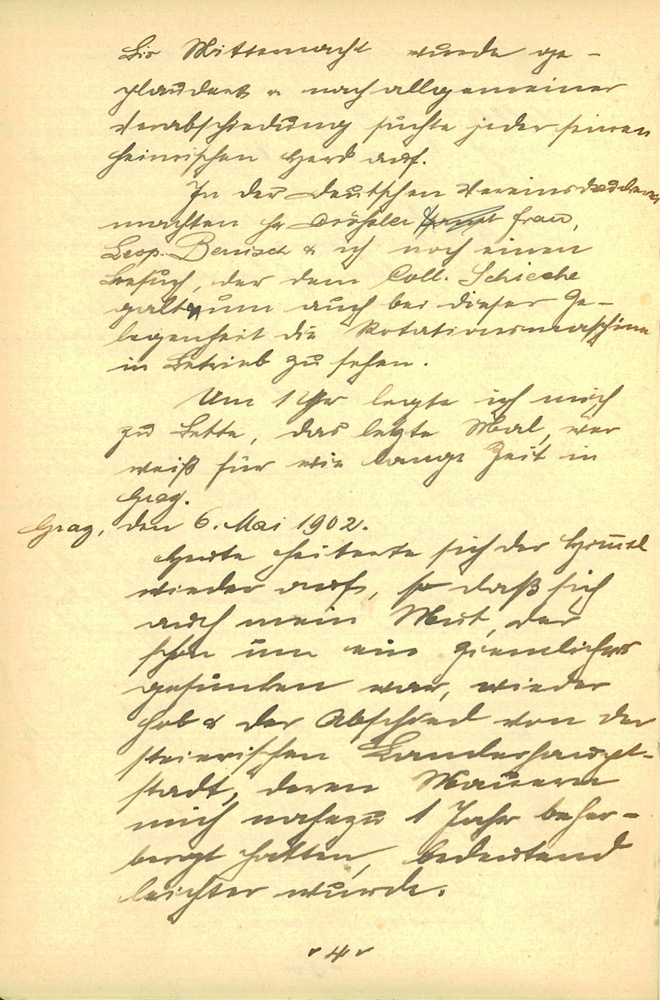 Bis Mitternacht wurde ge-
plaudert & nach allgemeiner
Verabschiedung suchte jeder seinen
heimischen Herd auf.
In der deutschen Vereinsdruckerei
machten H. Frau,
Leop. Benisch & ich noch einen
Besuch, der dem Coll. Schieche
galt um auch bei dieser Ge-
legenheit die Rotationsmaschine
in Betrieb zu sehen.
Um 1 Uhr legte ich mich
zu Bette, das letzte Mal, wer
weiß für wie lange Zeit in
Graz.
Graz, den 6. Mai 1902.
Heute heiterte sich der Himmel
wieder auf, so daß sich
auch mein Mut, der
schon um ein ziemliches
gesunken war, wieder
hob & der Abschied von der
steierischen Landeshaupt-
stadt, deren Mauern
mich nahezu 1 Jahr beher-
bergt hatten, bedeutend
leichter wurde.
4